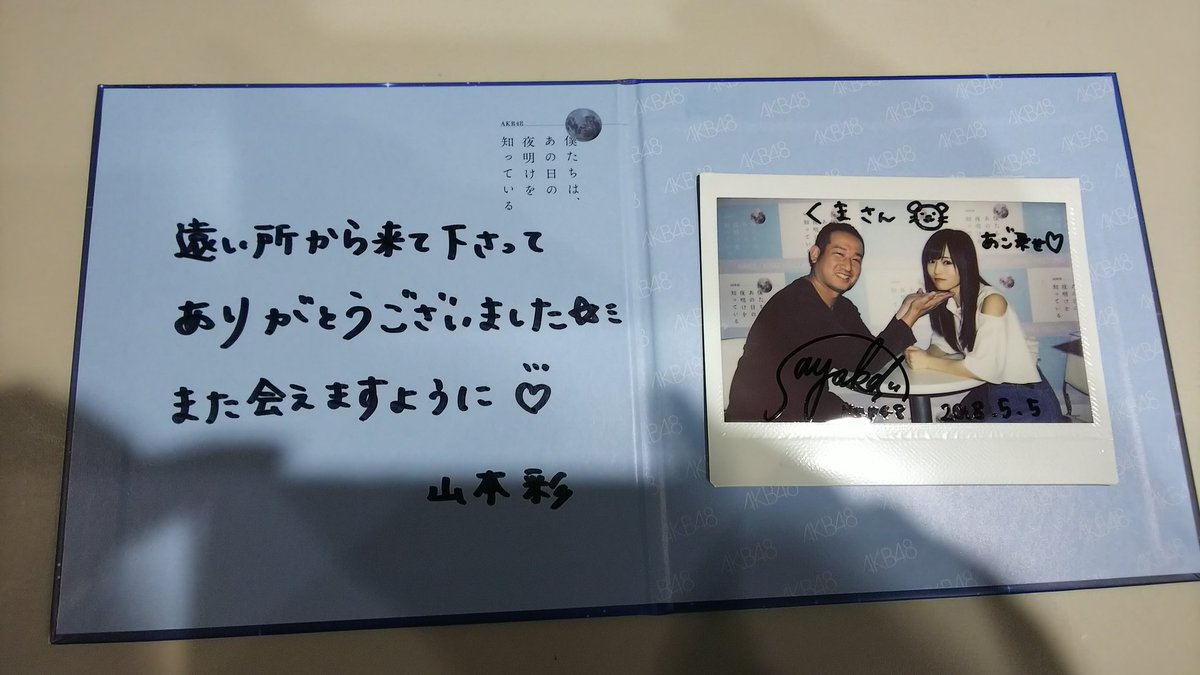 AKB48
僕たちは、
あの日の
夜明けを
知っている
遠い所から来て下さって
ありがとうございました☆
また会えますように♡
山本彩
AKB48
くまさん
あご乗せ♡
Sayaka
NMB48
2018.5.5